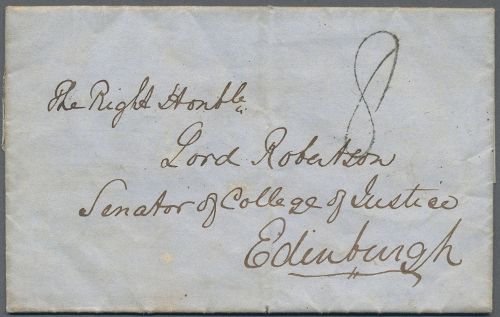 8
The Right Honble
Lord Robertson
Senator of College of Justice
Edinburgh